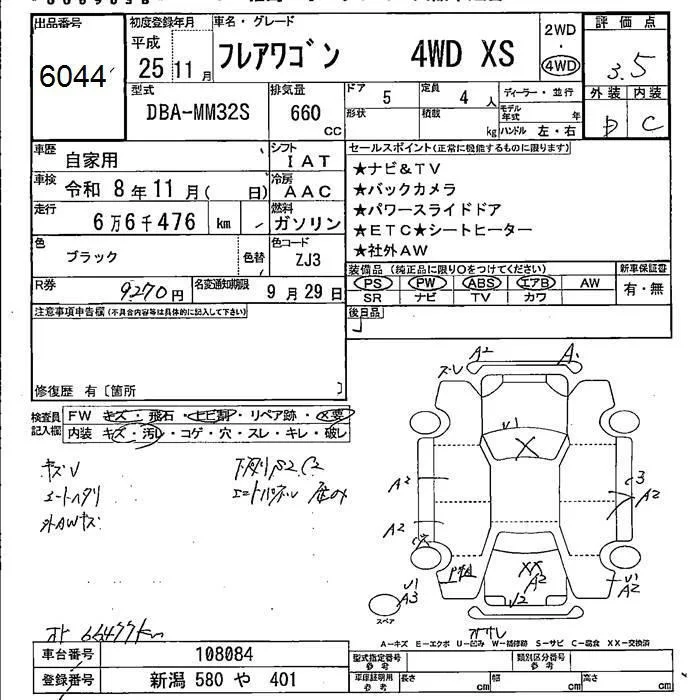 出品番号 初度登録年月 車名・グレード 2WD 評価点
6044 平成 フレアワゴン 4WD XS ・ 3.5
25 11月 4WD 外装 内装
型式 排気量 ドア 5 定員 4人 ディーラー・並行 D C
DBA-MM32S 660 cc 形状 積載 kg モデル年式 年
ハンドル 左・右
車歴 自家用 シフト IAT セールスポイント(正常に機能するものに限ります)
車検 令和 8年11月( 日) 冷房 AAC ★ナビ&TV
★バックカメラ
走行 6万6千476 km 燃料 ガソリン ★パワースライドドア
★ETC★シートヒーター
色 ブラック 色替 色コード ZJ3 ★社外AW
装備品(純正品に限り○をつけてください) 新車保証書
R券 9270円 名変通知期限 9月29日 PS PW ABS エアB AW 有・無
SR ナビ TV カワ
注意事項申告欄(不具合内容等は具体的に記入して下さい) 後日品
修復歴 有〔箇所 〕
検査員記入欄 FW キズ・飛石・ヒビ割・リペア跡・X要
内装 キズ・汚レ・コゲ・穴・スレ・キレ・破レ
キズV
シートヘタリ
外AWキズ
下廻りS2.C2
A2 A
ズレV
V1
X
A2 3
A2
A2
XX
A2
V1
A3
V1
A2
V2
スペア
オサレ
A-キズ E-エクボ U-凹み W-補修跡 S-サビ C-腐食 XX-交換済
オト 66477km
車台番号 108084 型式指定番号 参考 類別区分番号 参考
登録番号 新潟 580 や 401 車庫証明用 参考 長さ cm 幅 cm 高さ cm